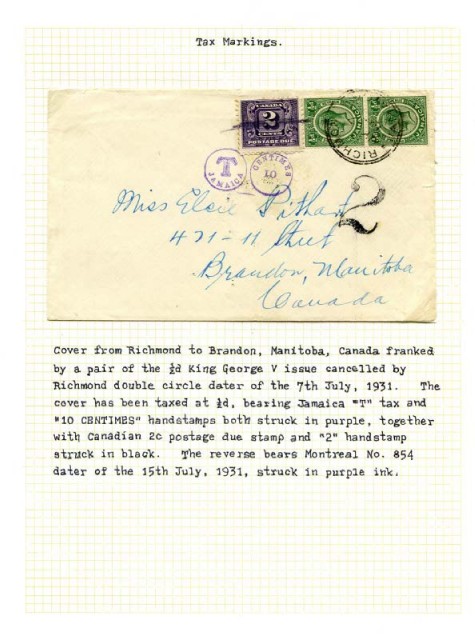 Tax Markings.
CANADA
2
CENTS
POSTAGE DUE
½d
½d
RICH
T
JAMAICA
CENTIMES
10
2
Miss Elsie
431-11 Street
Brandon, Manitoba
Canada
Cover from Richmond to Brandon, Manitoba, Canada franked
by a pair of the ½d King George V issue cancelled by
Richmond double circle dater of the 7th July, 1931. The
cover has been taxed at ½d, bearing Jamaica "T" tax and
"10 CENTIMES" handstamps both struck in purple, together
with Canadian 2c postage due stamp and "2" handstamp
struck in black. The reverse bears Montreal No. 854
dater of the 15th July, 1931, struck in purple ink.